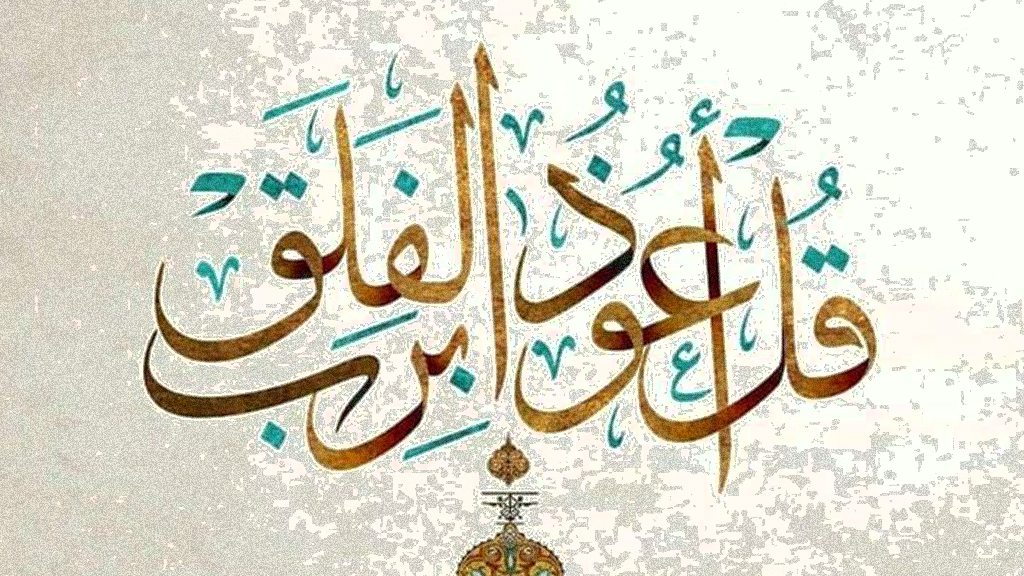 قُل أَعُوذُ بِرَبِّ الفَلَقِ